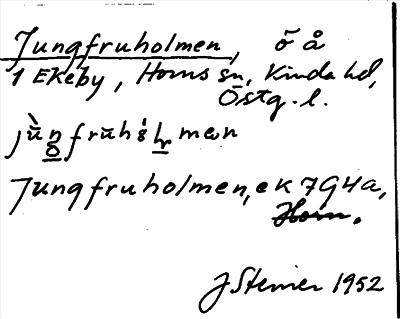 Jungfruholmen, ö å
1 Ekeby, Horns sn, Kinda hd,
Östg. l.
Jungfruholmen, ek 7G4a,
Horn.
J Steiner 1952